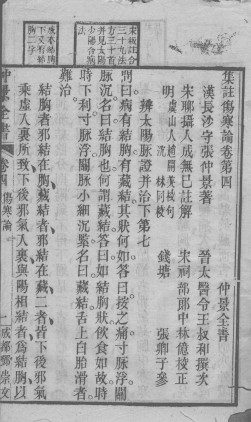 仲景全書
集註傷寒論卷第四
漢長沙守張仲景著
晉太醫令王叔和撰次
宋聊攝人成無已註解
宋祠部郎中林億校正
明虞山人趙開美校句
沈 林同校
錢塘 張卿子參
辨太陽脈證并治下第七
問曰病有結胸有藏結其狀何如答曰按之痛寸脈浮關
脈沉名曰結胸也何謂藏結答曰如結胸狀飲食如故時
時下利寸脈浮關脈小細沉緊名曰藏結舌上白胎滑者
難治
結胸者邪結在胸藏結者邪結在藏二者皆下後邪氣
乘虛入裏所致下後邪氣入裏與陽相結者為結胸以
仲景全書
卷四
傷寒論
一
成都鄧崇文